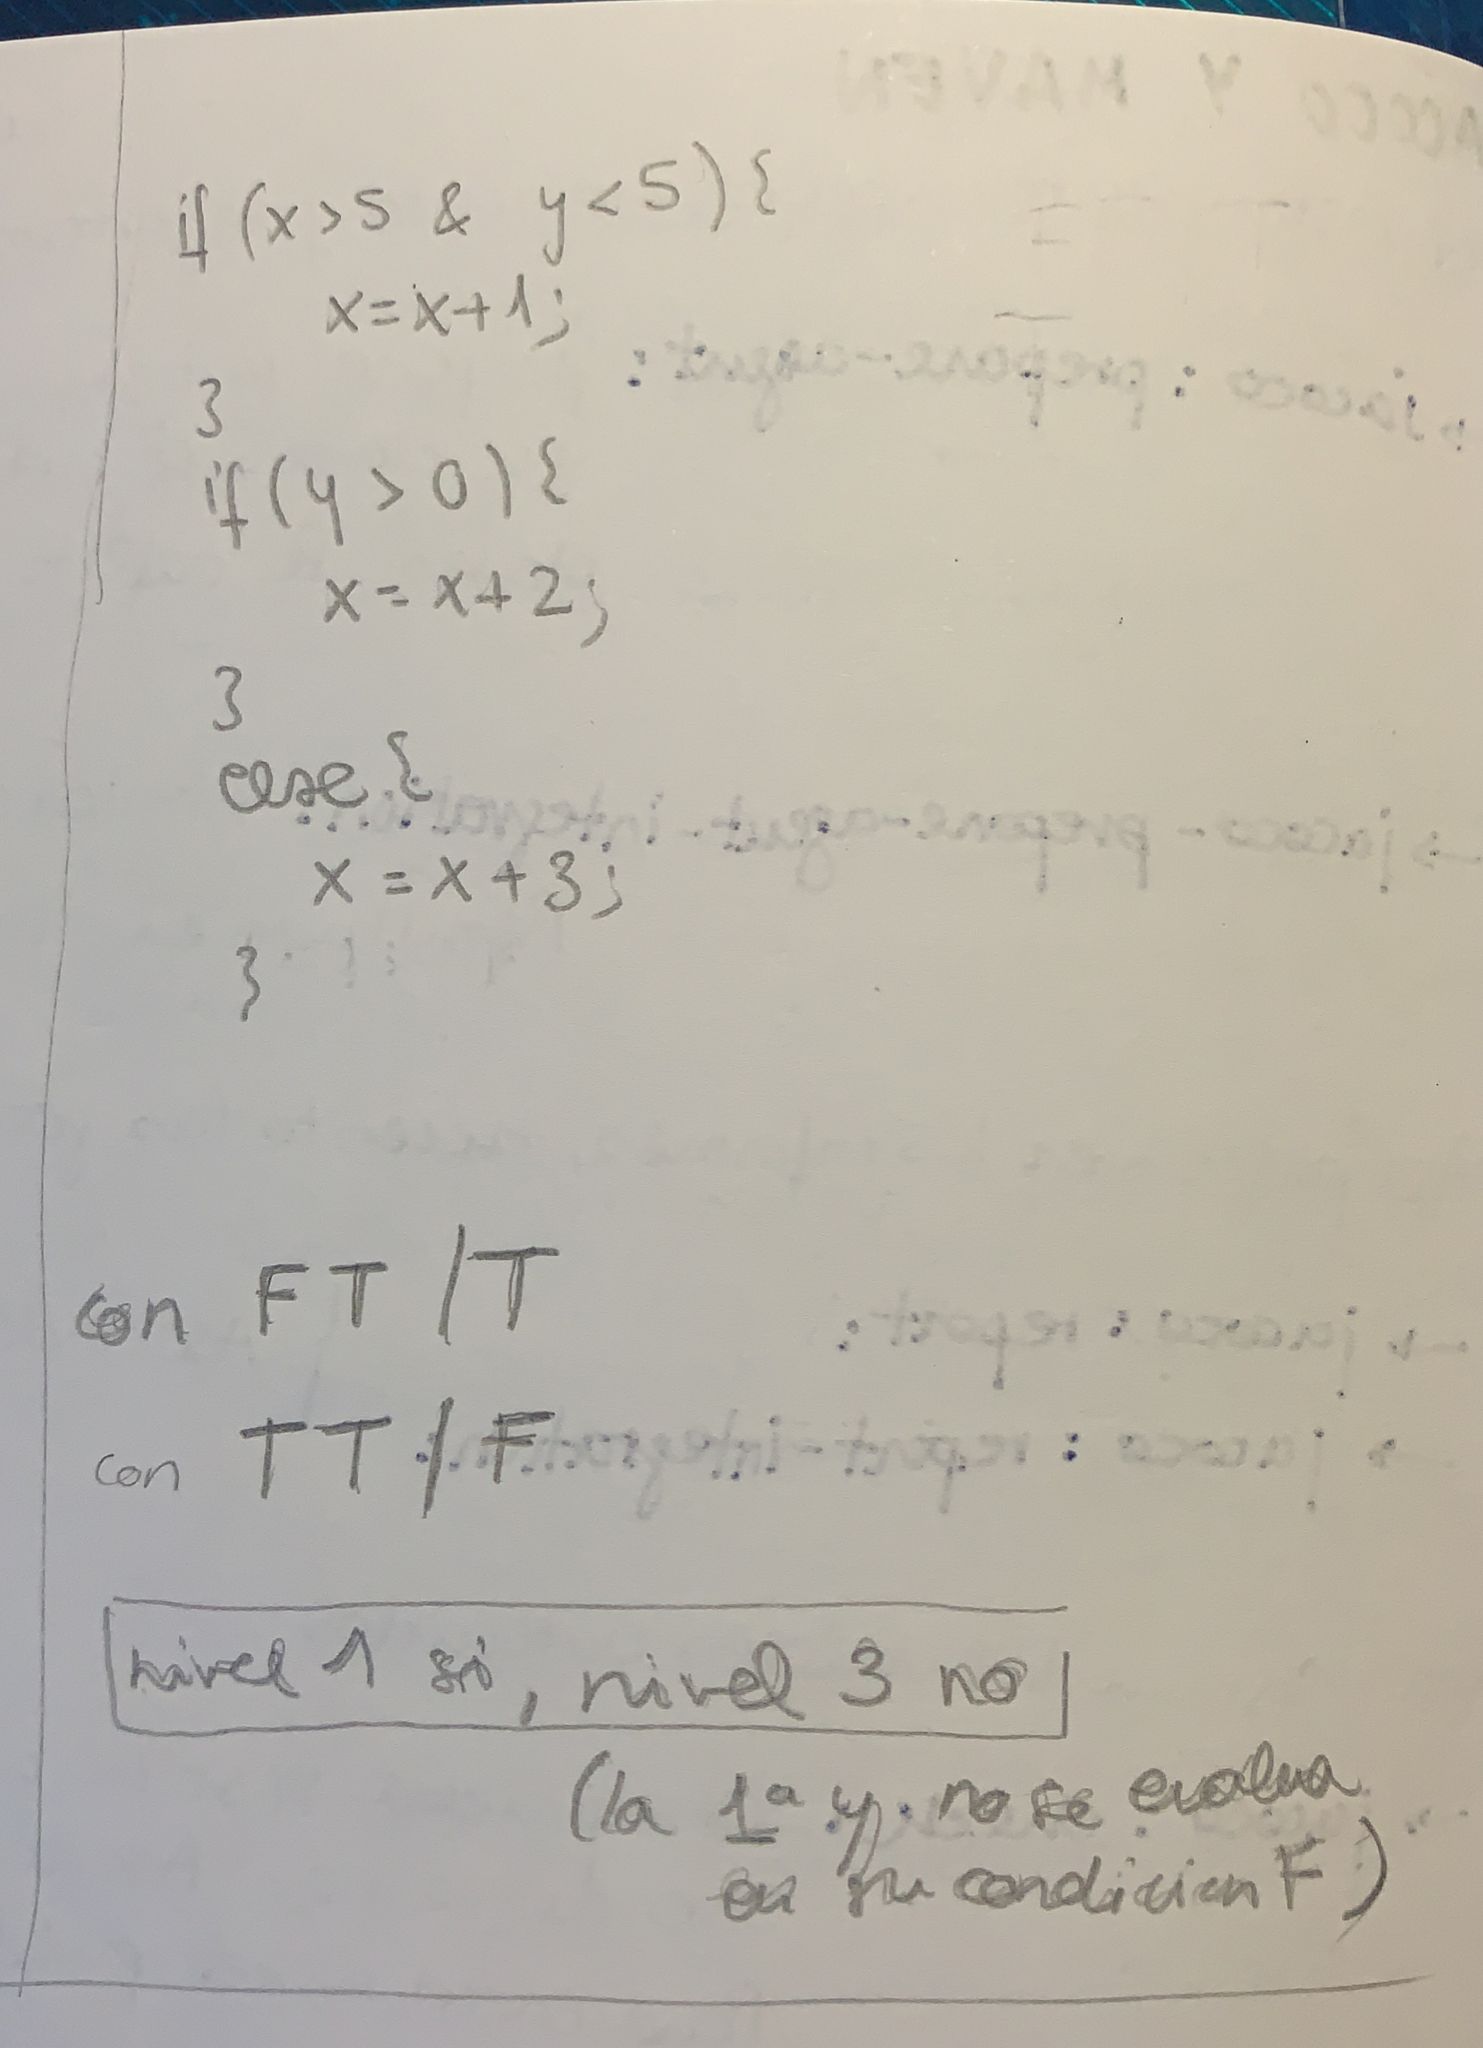 if (x>5 & y<5) {
x=x+1;
}
if (y>0) {
x=x+2;
}
else {
x=x+3;
}
con FT/T
con TT/F
nivel 1 sí, nivel 3 no
(la 1ª y no se evalua
en su condicion F)